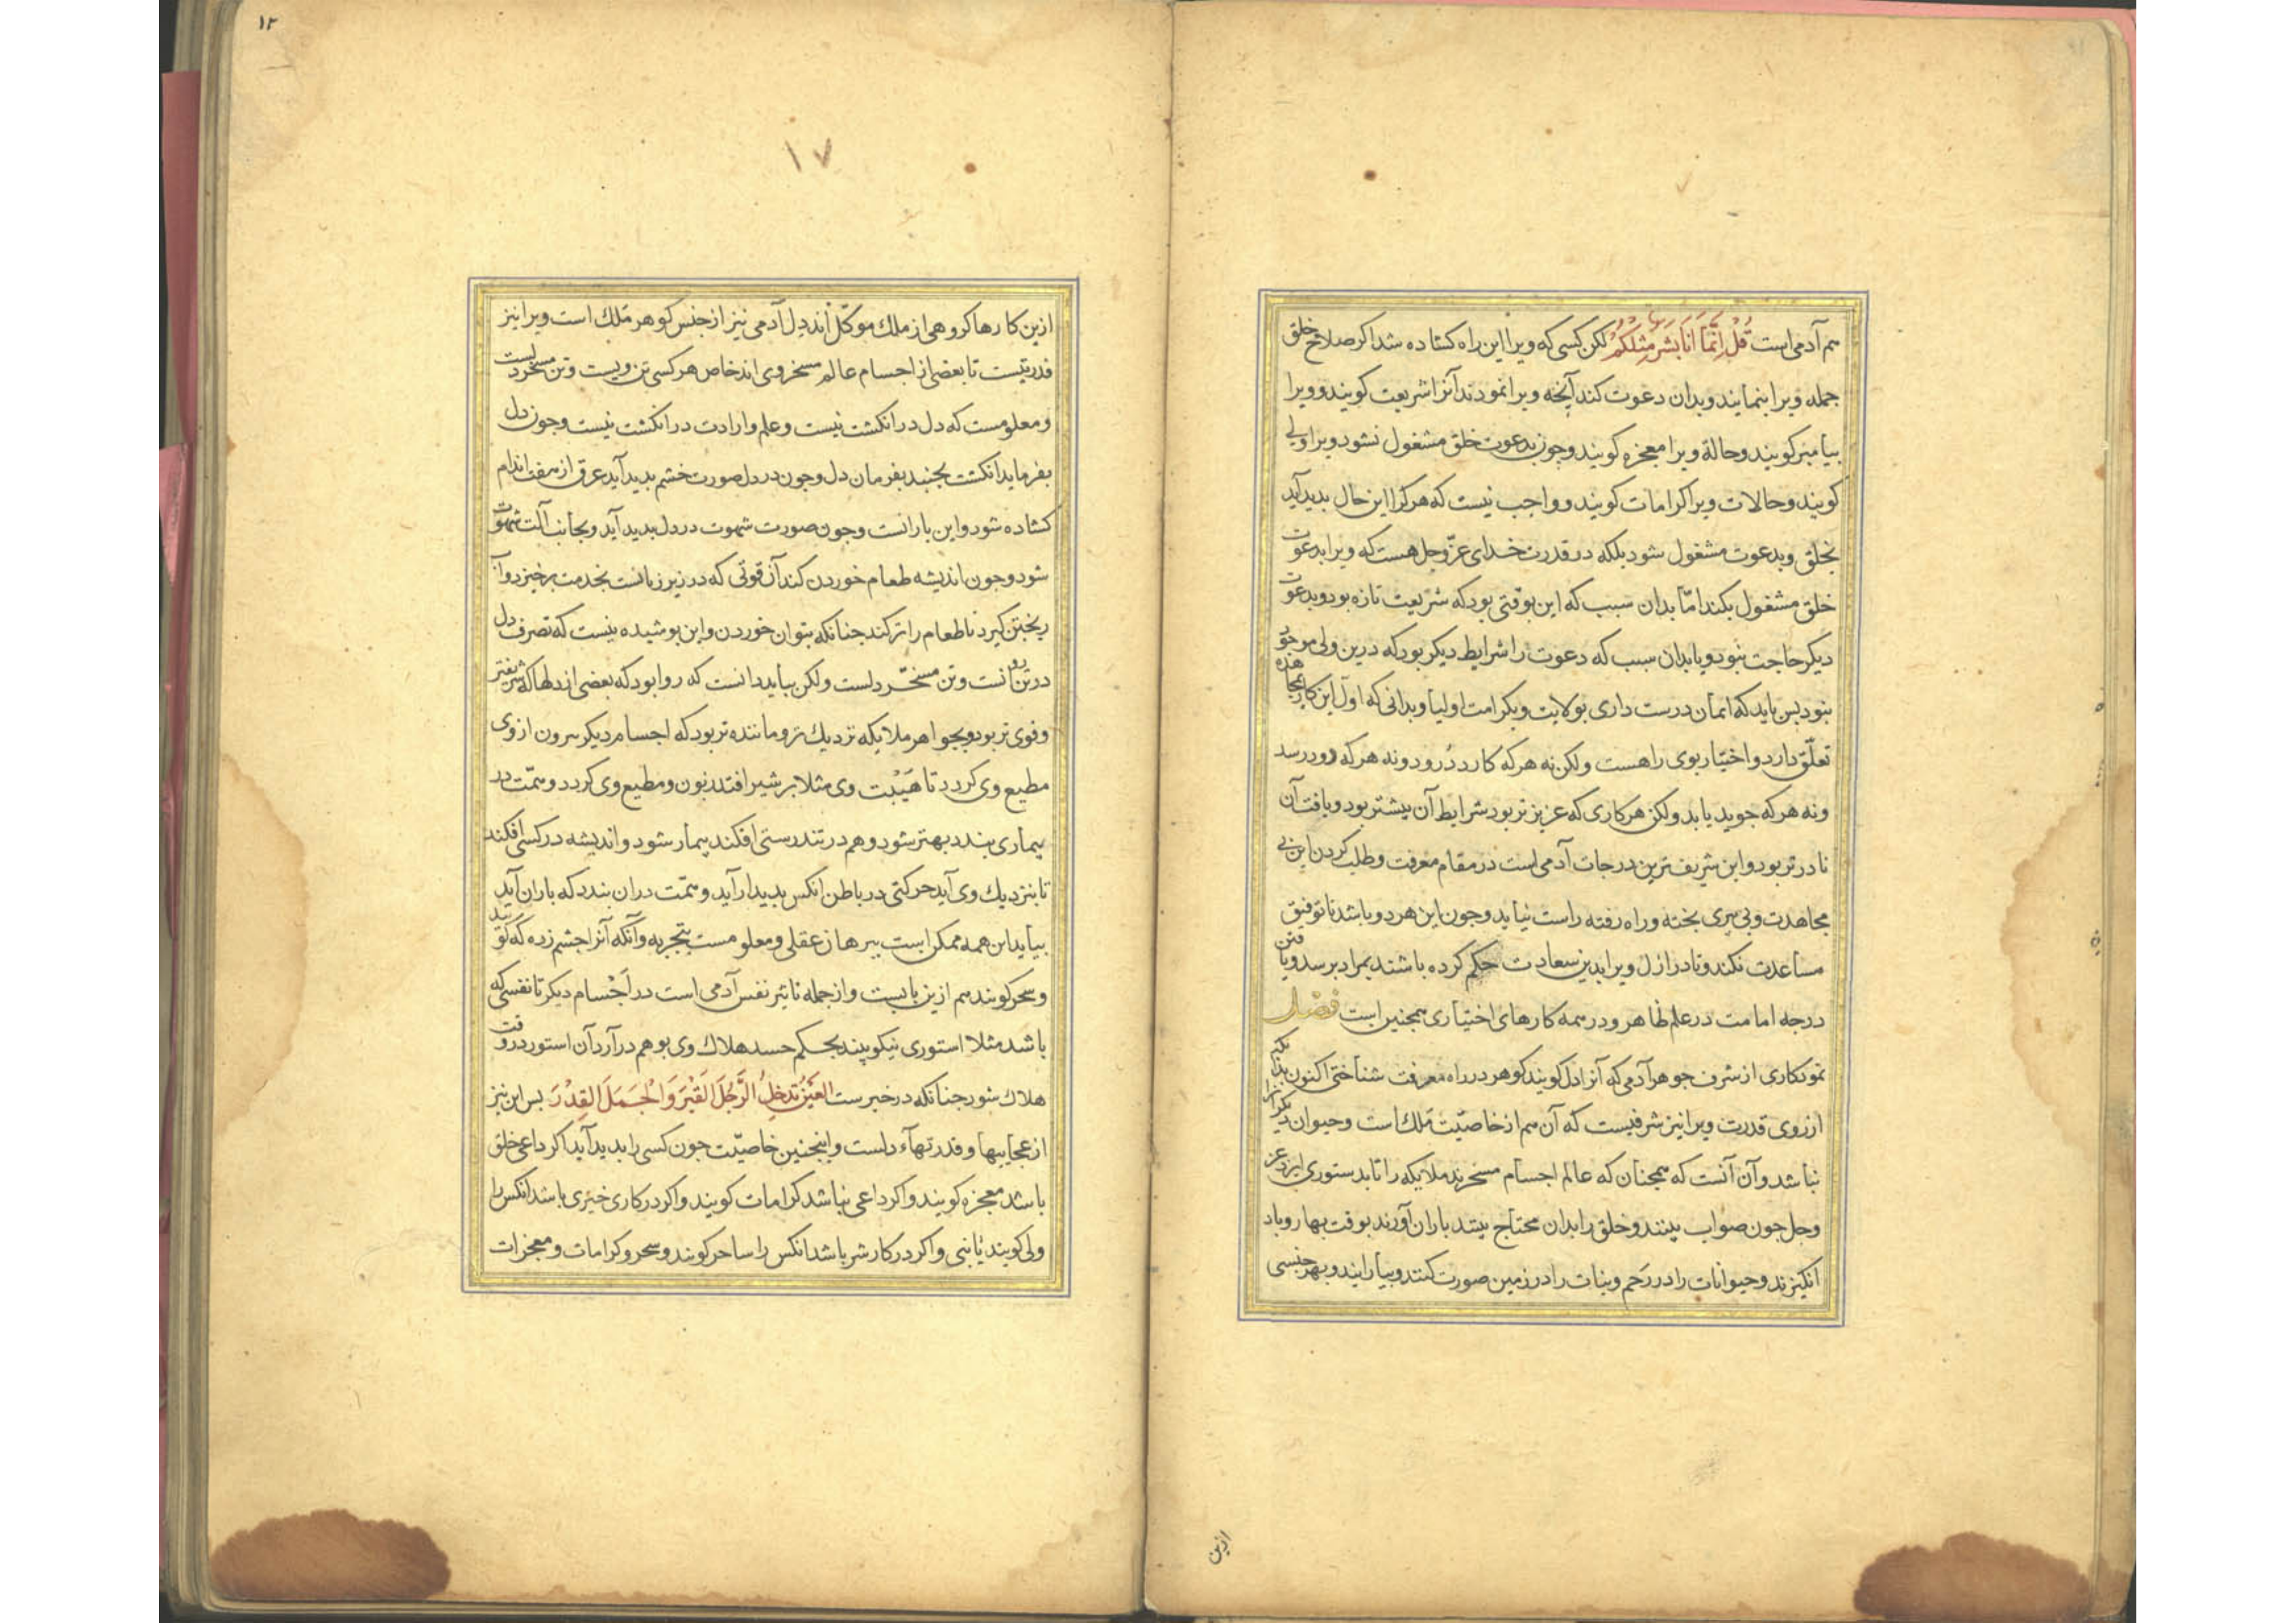 هم آدمی است قُلْ اِنَّمَا اَنَا بَشَرٌ مِثْلُكُمْ لکن کسی که ویرا این راه کشاده شد اکر صلاح خلق
جمله ویرا بنمایند و بدان دعوت کند آنچه ویرا نمودند آنرا شریعت کویند و ویرا
پیامبر کویند و حالة ویرا معجزه کویند و جون بدعوت خلق مشغول نشود ویرا ولی
کویند و حالات ویرا کرامات کویند و واجب نیست که هر کرا این حال بدید آید
بخلق و بدعوت مشغول شود بلکه در قدرت خدای عزّ وجل هست که ویرا بدعوت
خلق مشغول بکند امّا بدان سبب که این بوقتی بود که شریعت تازه بود و بدعوت
دیکر حاجت نبود و یا بدان سبب که دعوت را شرایط دیکر بود که درین ولی موجود
نبود بس باید که ایمان درست داری بولایت و بکرامت اولیا و بدانی که اول این کار بمجاهده
تعلّق دارد و اختیار بوی راهست ولکن نه هر که کارد دُرود و نه هر که رود رسد
و نه هر که جوید یابد ولکن هر کاری که عزیز تر بود شرایط آن بیشتر بود و یافت آن
نادر تر بود و این شریف ترین درجات آدمی است در مقام معرفت و طلب کردن این بی
مجاهدت و بی پیری بخته و راه رفته راست نیاید و جون این هر دو باشد تا توفیق
مساعدت نکند و تا در ازل ویرا بدین سعادت حکم کرده باشند بمراد برسد و یافتن
درجه امامت در علم ظاهر و در همه کارهای اختیاری همجنین است فصل
نمودکاری از شرف جوهر آدمی که آنرا دل کویند کوهر در راه معرفت شناختی اکنون بدانکه
از روی قدرت ویرا نیز شرفیست که آن هم از خاصیّت مَلك است و حیوان دیکر انرا
نباشد و آن آنست که همجنان که عالم اجسام مسخرند ملایکه را تا بدستوری ایزد عز
وجل جون صواب بینند و خلق را بدان محتاج بینند باران آورند بوقت بهار و باد
انکیزند و حیوانات را در رَحم و نبات را در زمین صورت کنند و بیارایند و بهر جنسی
ازین
۱۲
۱۷
ازین کارها کروهی از ملك موکّل اند دل آدمی نیز از جنس کوهر مَلك است ویرا نیز
قدرتیست تا بعضی از اجسام عالم مسخر وی اند خاص هر کسی تن ویست و تن مسخر دلست
و معلومست که دل در انکشت نیست و علم و ارادت در انکشت نیست و جون دل
بفرماید انکشت بجنبد بفرمان دل و جون در دل صورت خشم بدید آید عرق از هفت اندام
کشاده شود و این بارانست و جون صورت شهوت در دل بدید آید و بجانب آلت شهوت
شود و جون اندیشه طعام خوردن کند آن قوتی که در زیر زبانست بخدمت برخیزد و آب
ریختن کیرد تا طعام را تر کند جنانکه بتوان خوردن و این بوشیده نیست که تصرف دل
در تن روانست و تن مسخّر دلست ولکن بباید دانست که روا بود که بعضی از دلها که شریفتر
و قوی تر بود و بجواهر ملایکه نزدیك تر و ماننده تر بود که اجسام دیکر بیرون از وی
مطیع وی کردد تا هَیْبت وی مثلا بر شیر افتد زبون و مطیع وی کردد و همّت در
بیماری بندد بهتر شود و هم در تندرستی افکند بیمار شود و اندیشه در کسی افکند
تا بنزدیك وی آید حرکتی در باطن انکس بدیدار آید و همّت دران بندد که باران آید
بیاید این همه ممکن است ببرهان عقلی و معلومست بتجربه و آنکه آنرا جشم زده کویند
و سحر کویند هم ازین بابست و از جمله تاثیر نفس آدمی است در اَجْسام دیکر تا نفسی که
باشد مثلا استوری نیکو بیند بحکم حسد هلاك وی بوهم در آرد آن استور در وقت
هلاك شود جنانکه در خبرست العَیْنُ تُدخِلُ الرَّجُلَ القَبْرَ وَالْجَمَلَ القِدْرَ بس این نیز
از عجایبها و قدرتهاء دلست و اینجنین خاصیّت جون کسی را بدید آید اکر داعی خلق
باشد معجزه کویند و اکر داعی نباشد کرامات کویند و اکر در کاری خیری باشد انکس را
ولی کویند یا نبی و اکر در کار شر باشد انکس را ساحر کویند و سحر و کرامات و معجزات